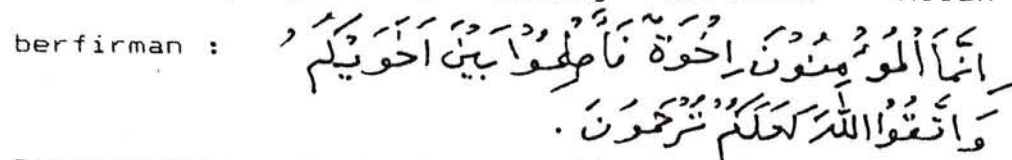 berfirman : اِنَّمَا الْمُؤْمِنُوْنَ اِخْوَةٌ فَأَصْلِحُوْا بَيْنَ اَخَوَيْكُمْ
وَاتَّقُوْا اللّٰهَ لَعَلَّكُمْ تُرْحَمُوْنَ .